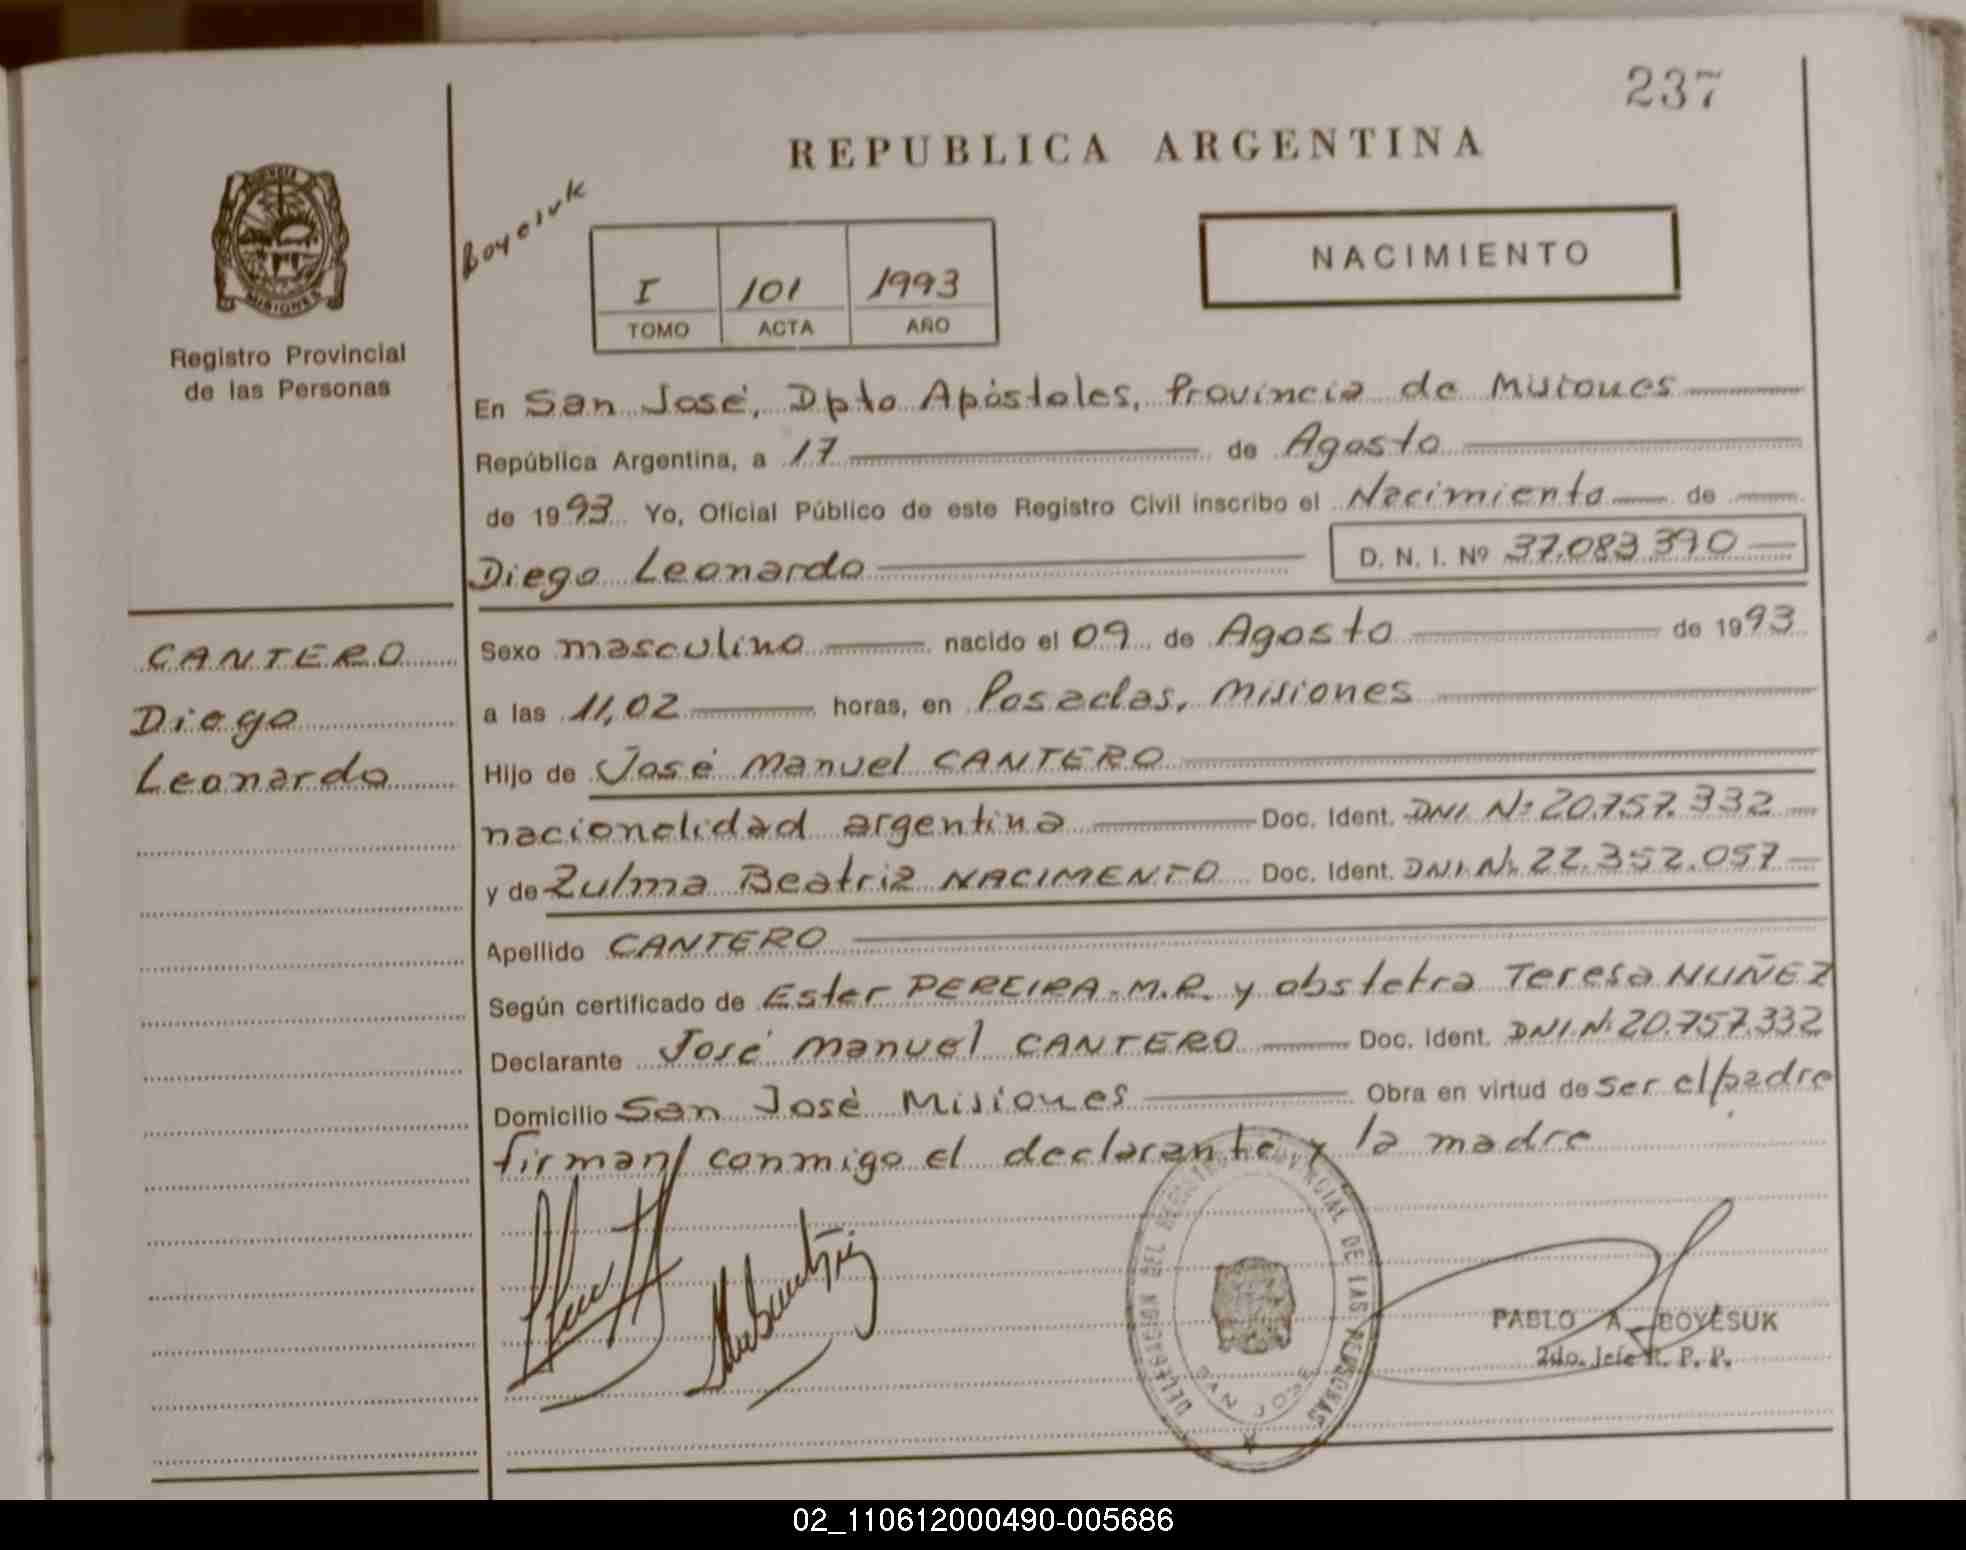 237
REPUBLICA ARGENTINA
PROVINCIA DE
MISIONES
Registro Provincial
de las Personas
Boyesuk
I 101 1993
TOMO ACTA AÑO
NACIMIENTO
En San José, Dpto Apóstoles, Provincia de Misiones
República Argentina, a 17 de Agosto
de 1993 Yo, Oficial Público de este Registro Civil inscribo el Nacimiento de
Diego Leonardo D. N. I. Nº 37.083 390
CANTERO
Diego
Leonardo
Sexo masculino nacido el 09 de Agosto de 1993
a las 11,02 horas, en Posadas, Misiones
Hijo de José Manuel CANTERO
nacionalidad argentina Doc. Ident. DNI. Nº 20.757.332
y de Zulma Beatriz NACIMENTO Doc. Ident. DNI. Nº 22.352.057
Apellido CANTERO
Según certificado de Ester PEREIRA-M.R. y obstetra Teresa NUÑEZ
Declarante José Manuel CANTERO Doc. Ident. DNI. Nº 20.757.332
Domicilio San José Misiones Obra en virtud de ser el/padre
firman/ conmigo el declarante y la madre
DELEGACION DEL REGISTRO PROVINCIAL DE LAS PERSONAS
SAN JOSE
PABLO A. BOYESUK
2do. Jefe R. P. P.
02_110612000490-005686